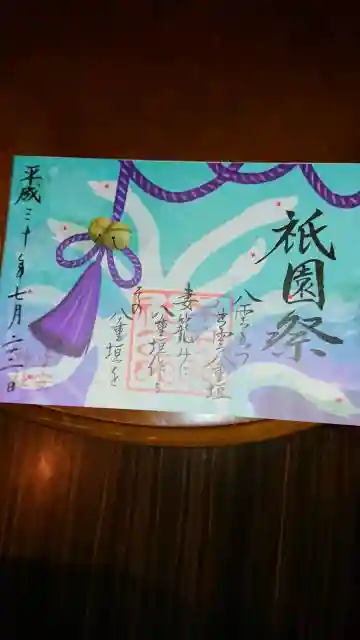 祇園祭
八雲立つ
出雲八重垣
妻籠みに
八重垣作る
その
八重垣を
平成三十年七月二十一日